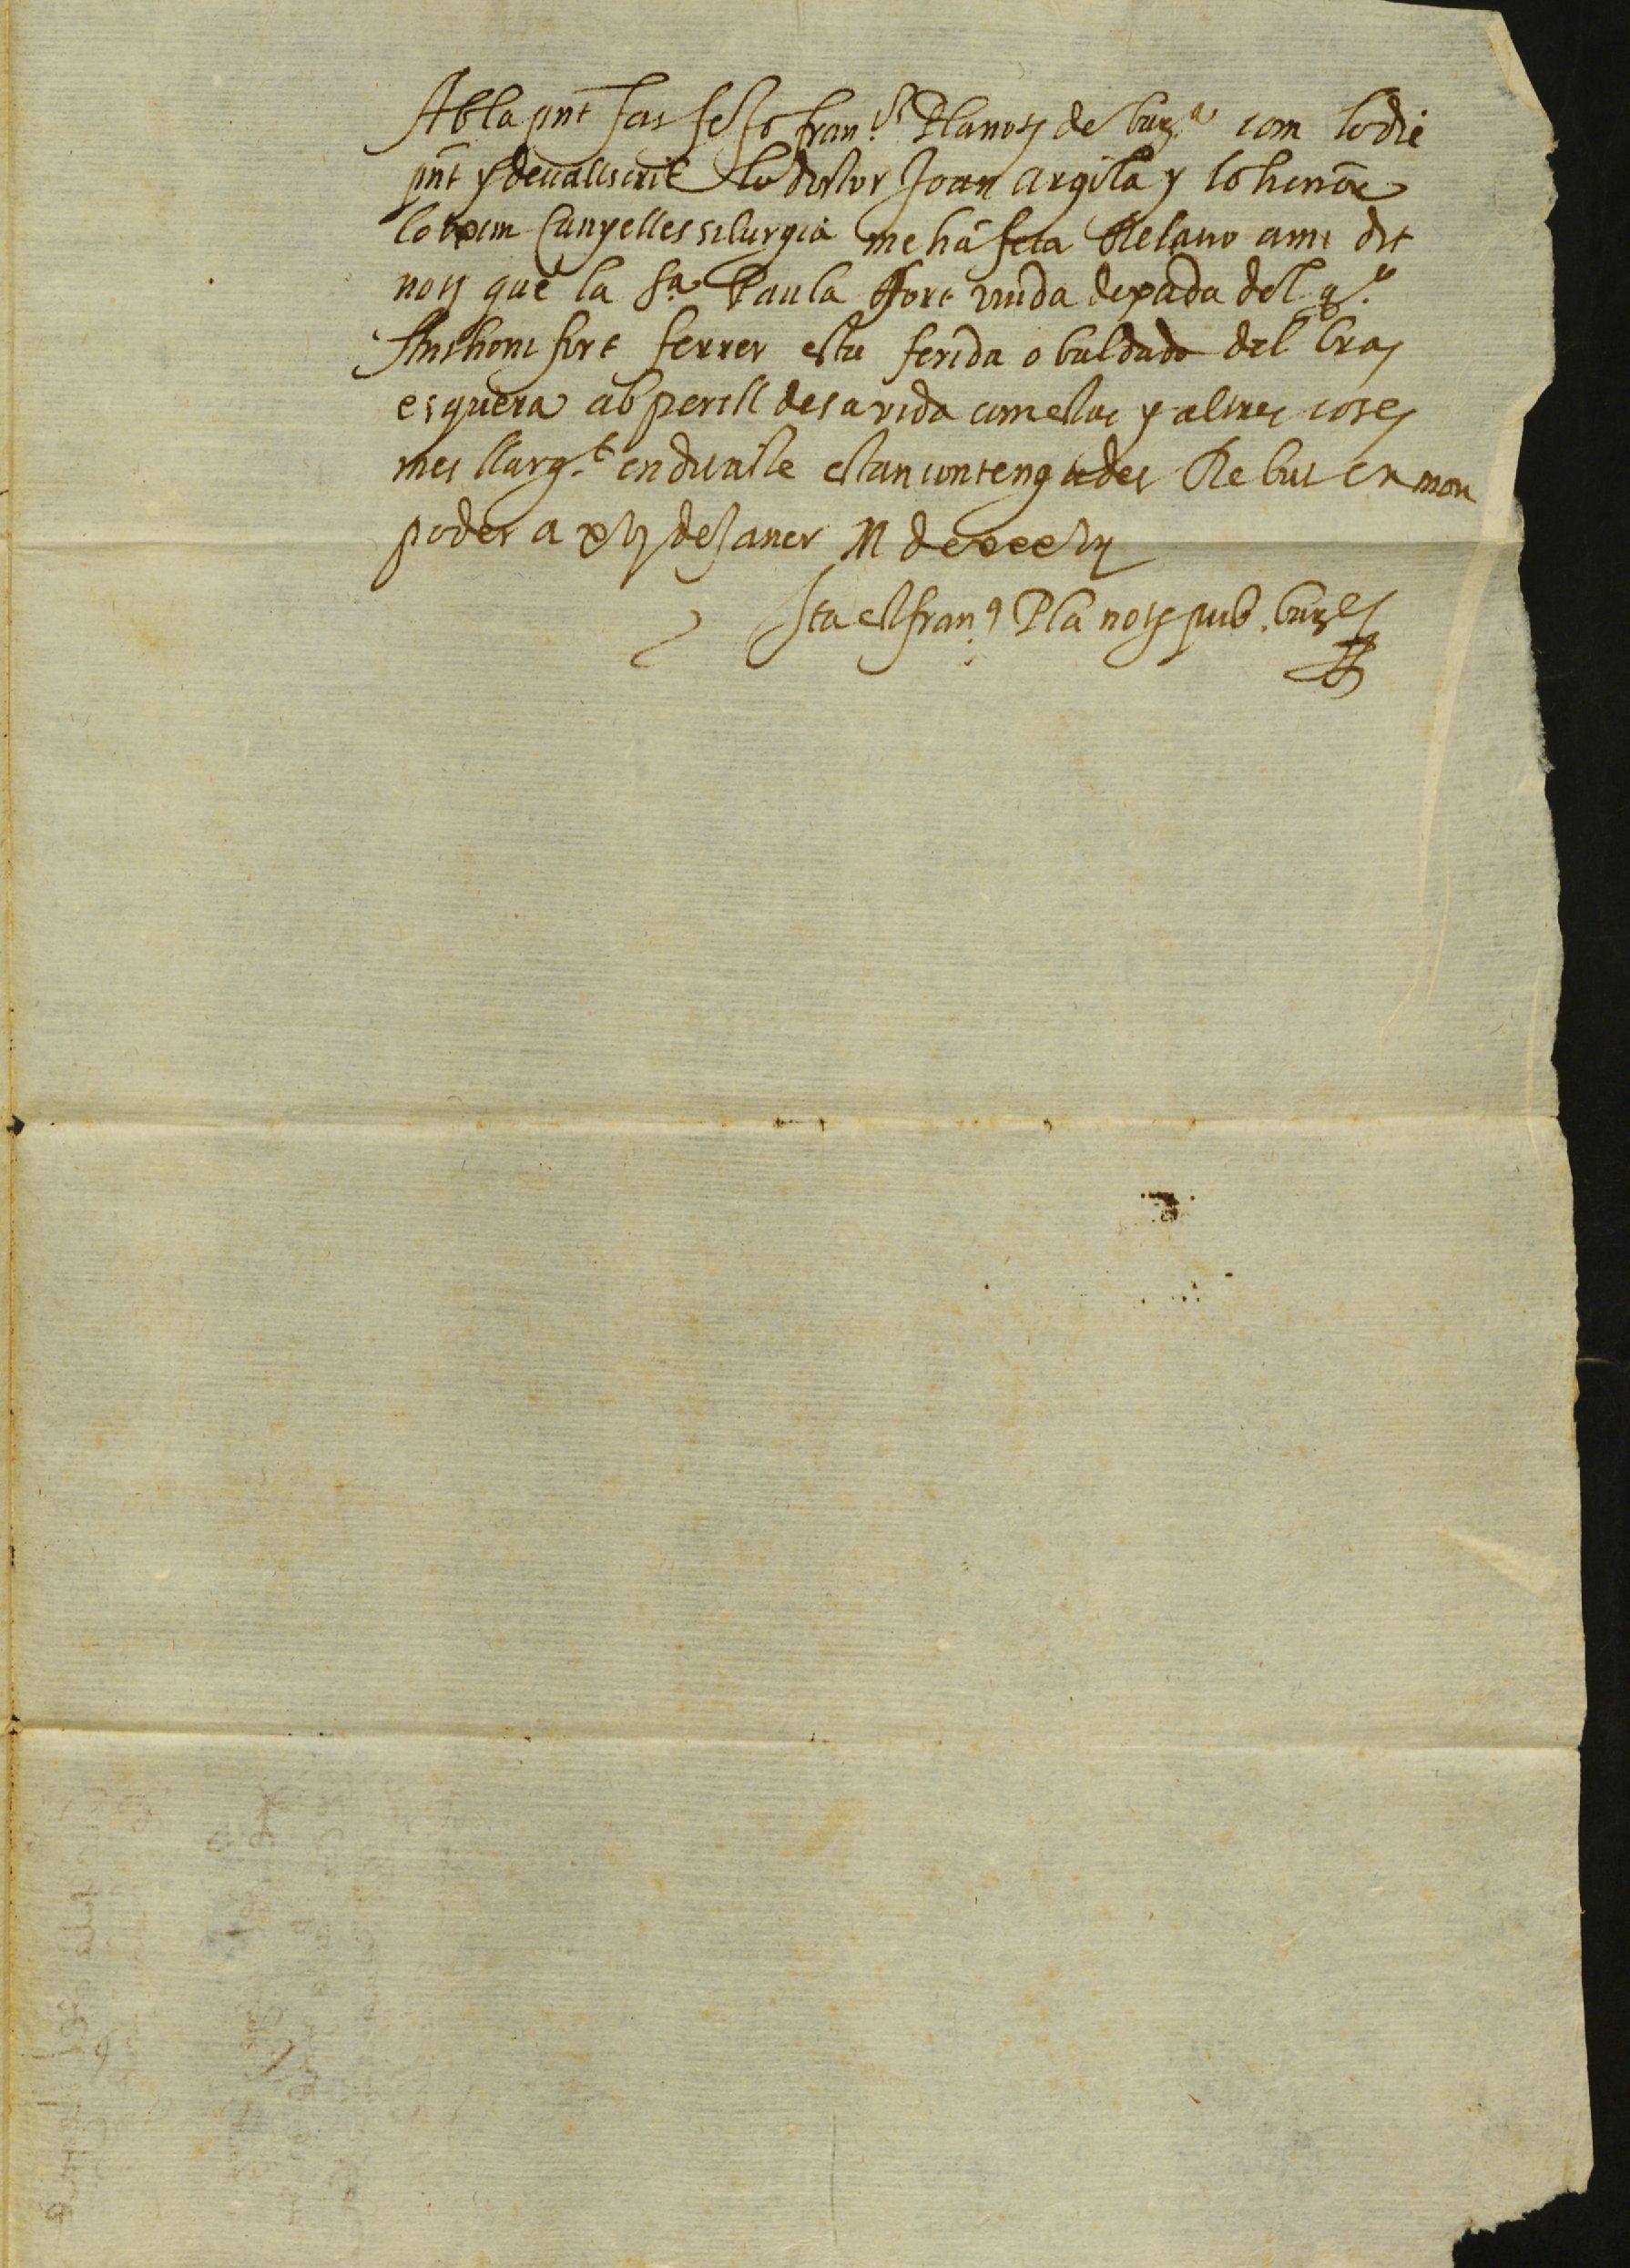 Ab la pnt fas fe Jo fran.ch Pla noty de barª com lo die
pnt y devall scrit lo doctor Joan Argila y lo honor
Canyelles silurgia me ha feta Relatio a mi dit
noty que la Sª Paula ffort viuda dexada del qº
Anthoni fort ferrer esta ferida o baldada del bras
esquera ab perill de sa vida com estas y altres coses
mes llargt en dit acte estan contengudes Rebut en mon
poder a de Janer M
Ita est fran9 Pla noty pub. bares